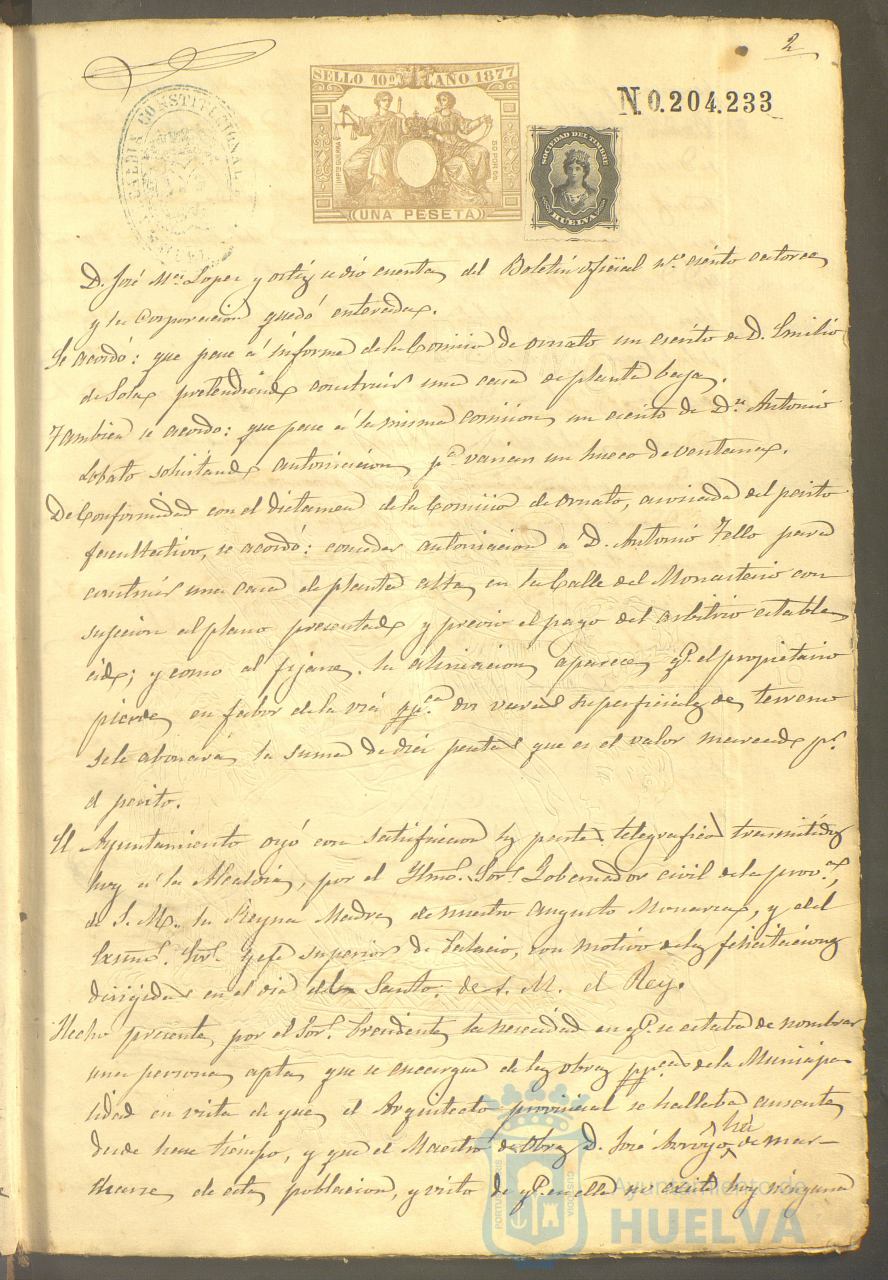 2
ALCALDIA CONSTITUCIONAL
HUELVA
SELLO 10º AÑO 1877
IMPTO GUERRA
50 POR 00
UNA PESETA
N.0.204.233
SOCIEDAD DEL TIMBRE
HUELVA
D. José Mª Lopez y ortiz se dió cuenta del Boletin oficial nº ciento catorce
y la Corporacion quedó enterada.
Se acordó: que pase á informe de la Comision de ornato un escrito de D. Emilio
de Sola pretendiendo construir una casa de planta baja.
Tambien se acordo: que pase á la misma comision un escrito de Dn Antonio
Lobato solicitando autorizacion pª variar un hueco de ventana.
De Conformidad con el dictamen de la Comision de ornato, asociada del perito
facultativo, se acordó: conceder autorizacion a D. Antonio Tello para
construir una casa de planta alta en la Calle del Monasterio con
sujecion al plano presentado y previo el pago del arbitrio estable
cido; y como al fijarse la alineacion aparece qe el propietario
pierde en fabor de la via ppca dos varas superficiales de terreno
se le abonará la suma de diez pesetas que es el valor marcado pr
el perito.
El Ayuntamiento oyó con satisfaccion los partes telegraficos trasmitidos
hoy á la Alcaldia, por el Ylmo. Sor. Gobernador civil de la prova,
de S. M. la Reyna Madre de nuestro Augusto Monarca, y del
Exmo. Sor. Gefe superior de Palacio, con motivo de las felicitaciones
dirigidas en el dia del Santo de S. M. el Rey.
Hecho presente por el Sor. Presidente la necesidad en qe se estaba de nombrar
una persona apta que se encargue de las obras ppcas de la Municipa
lidad en vista de que el Arquitecto provincial se hallaba ausente
desde hace tiempo, y que el Maestro de Obras D. José Arroyo ha de mar-
charse de esta poblacion, y visto de qe en ella no existe hoy ninguna
PORTUS MARIS
CUSTODIA
Ayuntamiento de
HUELVA